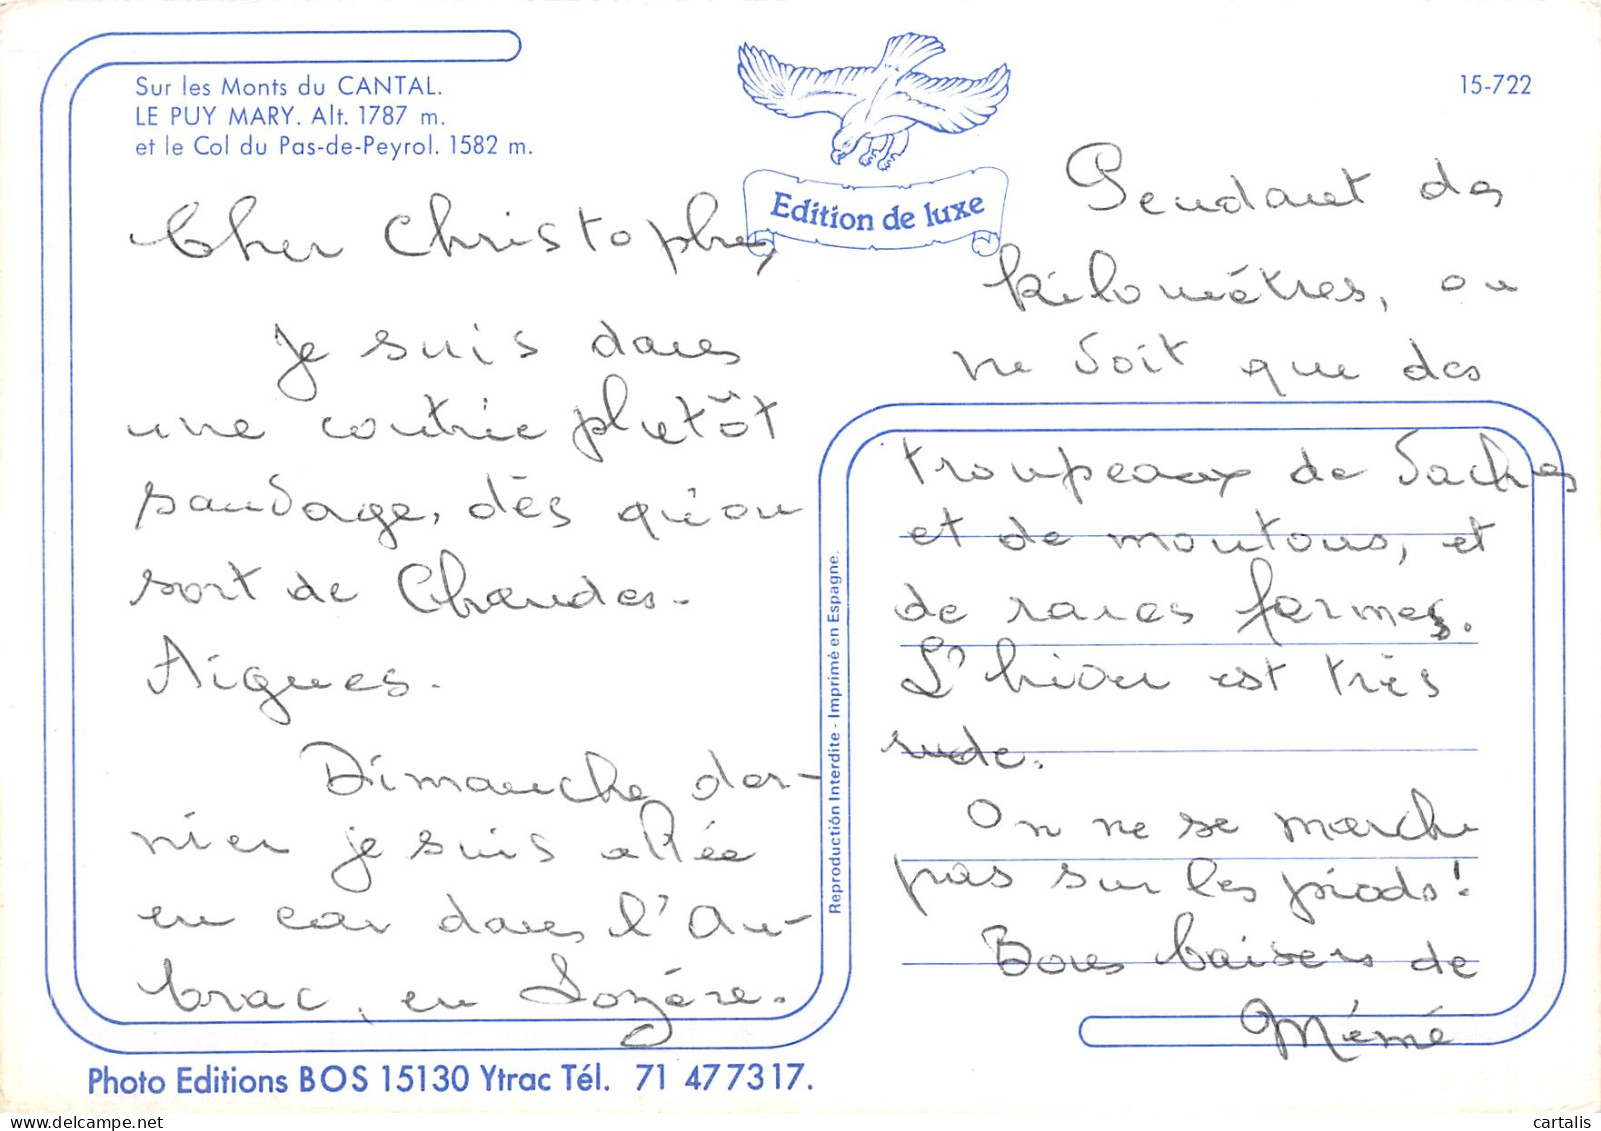 Sur les Monts du CANTAL.
LE PUY MARY. Alt. 1787 m.
et le Col du Pas-de-Peyrol. 1582 m.
Edition de luxe
15-722
Cher Christophe,
Je suis dans
une contrée plutôt
sauvage, dès qu'on
sort de Chaudes-
Aigues.
Dimanche der-
nier je suis allée
en car dans l'Au-
brac, en Lozère.
Pendant des
kilomètres, on
ne voit que des
troupeaux de vaches
et de moutons, et
de rares fermes.
L'hiver est très
rude.
On ne se marche
pas sur les pieds!
Bons baisers de
Mémé
Reproduction Interdite - Imprimé en Espagne.
Photo Editions BOS 15130 Ytrac Tél. 71 47 73 17.
cartalis
delcampe.net